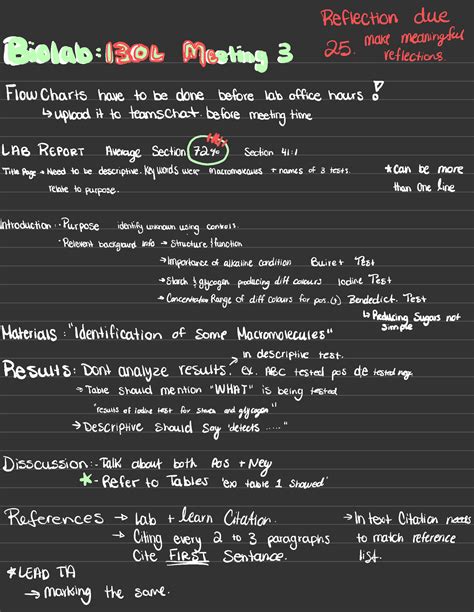 Biolab: 130L Meeting 3
Reflection due
25. make meaningful
reflections.
Flow Charts have to be done before lab office hours!
↳ upload it to teamschat before meeting time
LAB REPORT Average Section 72% Section 41:1
Title Page → Need to be descriptive. Key words were macromolecules + names of 3 tests.
relate to purpose.
*Can be more
than one line
Introduction: · Purpose identify unknown using controls.
· Relevent background info → Structure & function
→ Importance of alkaline condition Buiret Test
→ Starch & glycogen producing diff colours Iodine Test
→ Concentration Range of diff colours for pos.(s) Bendedict. Test
↳ Reducing Sugars not
simple
Materials: "Identification of Some Macromolecules"
Results: Dont analyze results. ex. ABC tested pos de tested neg.
→ in descriptive test.
→ Table Should mention "WHAT" is being tested
"results of iodine test for starch and glycogen"
→ Descriptive Should Say 'detects ....."
Disscussion: - Talk about both Pos + Neg
* - Refer to Tables 'exo table 1 Showed'
References → Lab + learn Citation.
→ Citing every 2 to 3 paragraphs
Cite FIRST Sentance.
→ In text Citation needs
to match reference
list.
*LEAD TA
→ Marking the same.